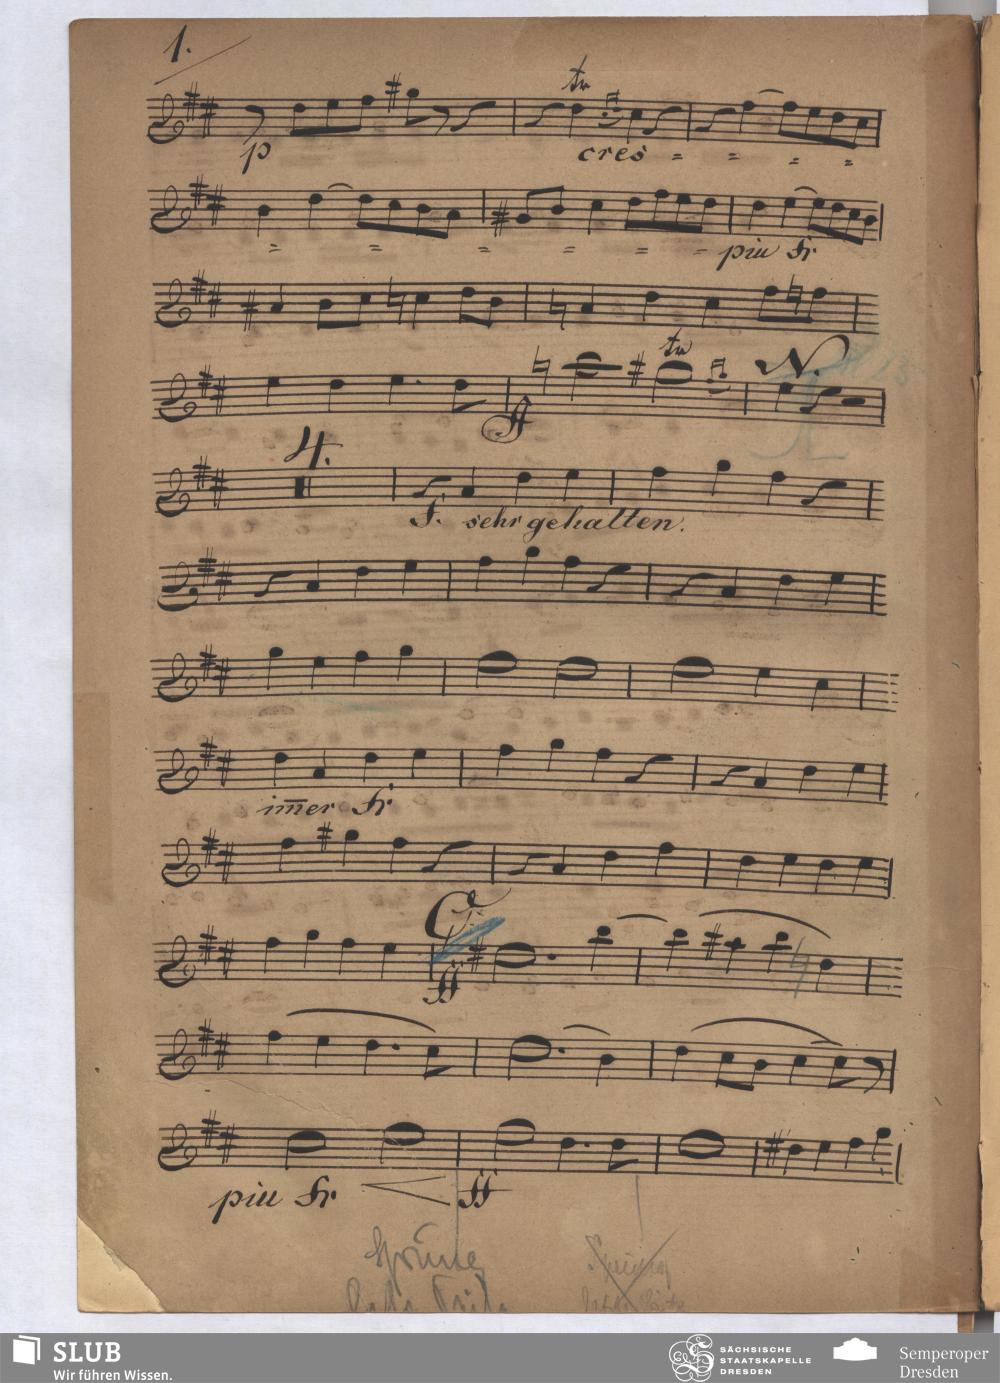 1.
tr
p cres = = = =
= = = = = - piu fr
tr N.
ff
4.
F. sehr gehalten.
im̄er fr
C
ff
piu fr ff
Sprung
SLUB
Wir führen Wissen.
SÄCHSISCHE
STAATSKAPELLE
DRESDEN
Semperoper
Dresden